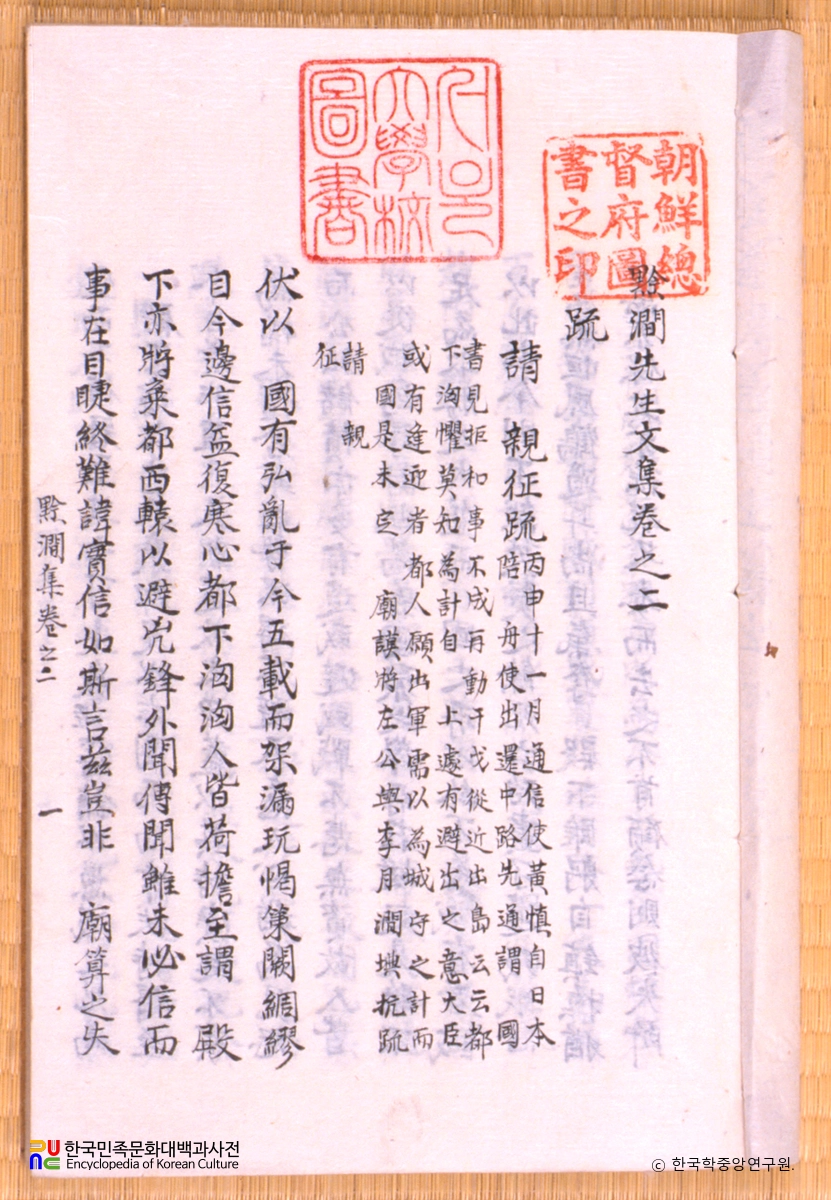 朝鮮總
督府圖
書之印
서울
大學校
圖書
黔澗先生文集卷之二
疏
請 親征疏
丙申十一月通信使黃愼自日本
陪舟使出還中路先通謂 國
書見拒和事不成再動干戈從近出島云云都
下洶懼莫知為計自 上遽有避出之意大臣
或有逢迎者都人願出軍需以為城守之計而
國是未定 廟謨將左公與李月澗㙉抗疏
請 親
征
伏以 國有弘亂于今五載而架漏玩愒策闕綢繆
目今邊信益復寒心都下洶洶人皆荷擔至謂 殿
下亦將棄都西轅以避兇鋒外聞傳聞雖未必信而
事在目睫終難諱實信如斯言玆豈非 廟算之失
黔澗集卷之二 一
한국민족문화대백과사전
Encyclopedia of Korean Culture
© 한국학중앙연구원.